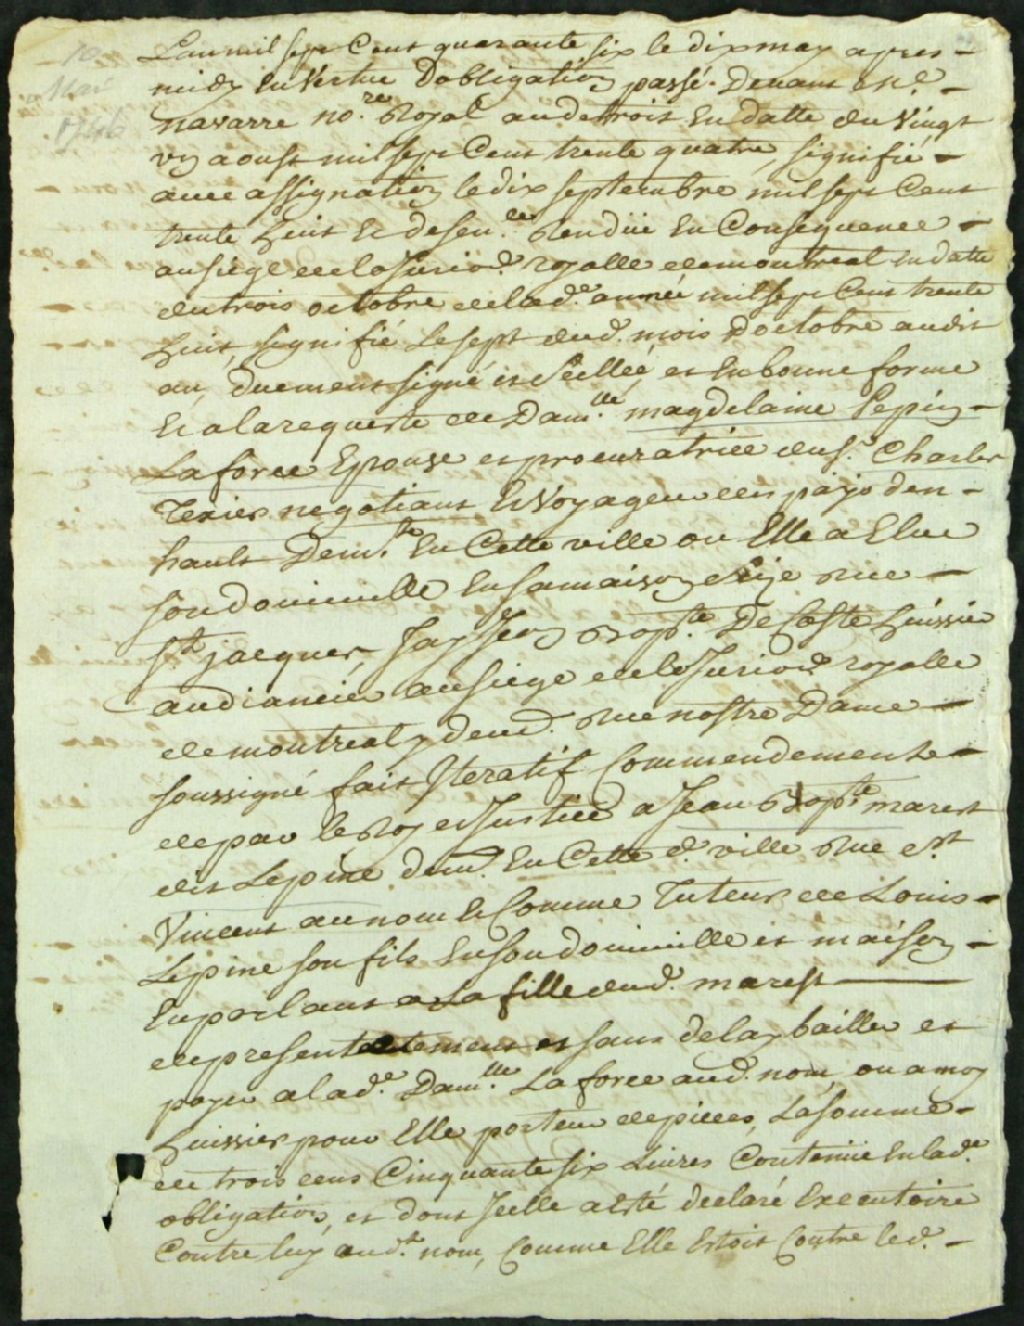 10
Mai
1746
Lan mil sept Cent quarante six le dix may apres
midy En Vertu Dobligation passé Devant Me.
navarre no.re Royal au detroit En datte du Vingt
vn aoust mil sept Cent trente quatre, signifié
avec assignation le dix septembre mil sept Cent
trente huit Et de sen.ce Rendüe En Consequence
au siege de la Jurisd.on royalle de montreal en datte
du trois octobre de lad.e année mil sept Cent trente
huit, signifié Le sept dud. mois Doctobre audit
an, Duement signé et Scellée, et En bonne forme
Et a la requeste de Dam.lle magdelaine Pepin
Laforce Epouse et procuratrice du Sr. Charles
Texier negotiant Et Voyageur des pays den
hault Dem.te En Cette ville ou Elle a Elue
son domicille En sa maison size rue
St. jacques, Jay Jean Bapt.e Decoste huissier
audiancier au siege de la Jurisd.on royalle
de montreal y dem.t rue nostre Dame
soussigné fait Iteratif Commendement
de par le Roy et Justice a Jean Bapt.e marest
dit Lepine dem.t En Cette d. ville Rue St.
Vincent au nom Et Comme Tuteur de Louis
Lepine son fils En son domicille et maison
En parlant a la fille dud. marest
de presentement et sans delay bailler et
payer a lad.e Dam.lle Laforce aud. nom, ou a moy
huissier pour Elle porteur de pieces, La somme
de trois cens Cinquante six Livres Contenüe En lad.e
obligation, et dont Icelle a esté declaré Executoire
Contre luy aud.t nom, Comme Elle Estoit Contre led.